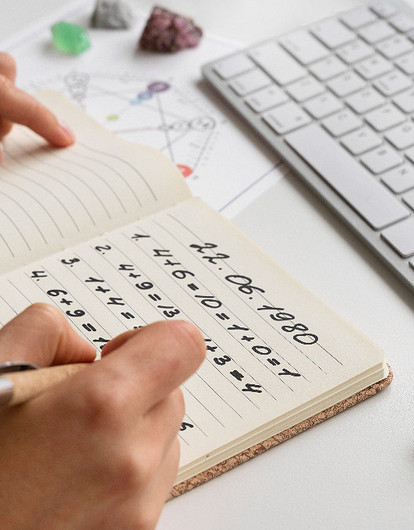 22.06.1980
1. 4+6=10=1+0=1
2. 4+9=13 +3=4
3. 1+4=
4. 6+9=1